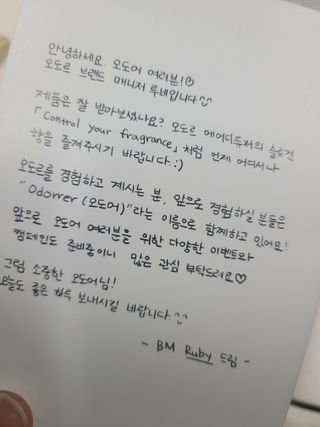 안녕하세요. 오도어 여러분!☺
오도르 브랜드 매니저 루비입니다^^
제품은 잘 받아보셨나요? 오도르 에어디퓨저의 슬로건
「Control your fragrance」처럼 언제 어디서나
향을 즐겨주시기 바랍니다 :)
오도르를 경험하고 계시는 분, 앞으로 경험하실 분들은
"Odorrer (오도어)"라는 이름으로 함께하고 있어요!
앞으로 오도어 여러분을 위한 다양한 이벤트와
캠페인도 준비중이니 많은 관심 부탁드려요♡
그럼 소중한 오도어님!
오늘도 좋은 하루 보내시길 바랍니다.^^
- BM Ruby 드림 -